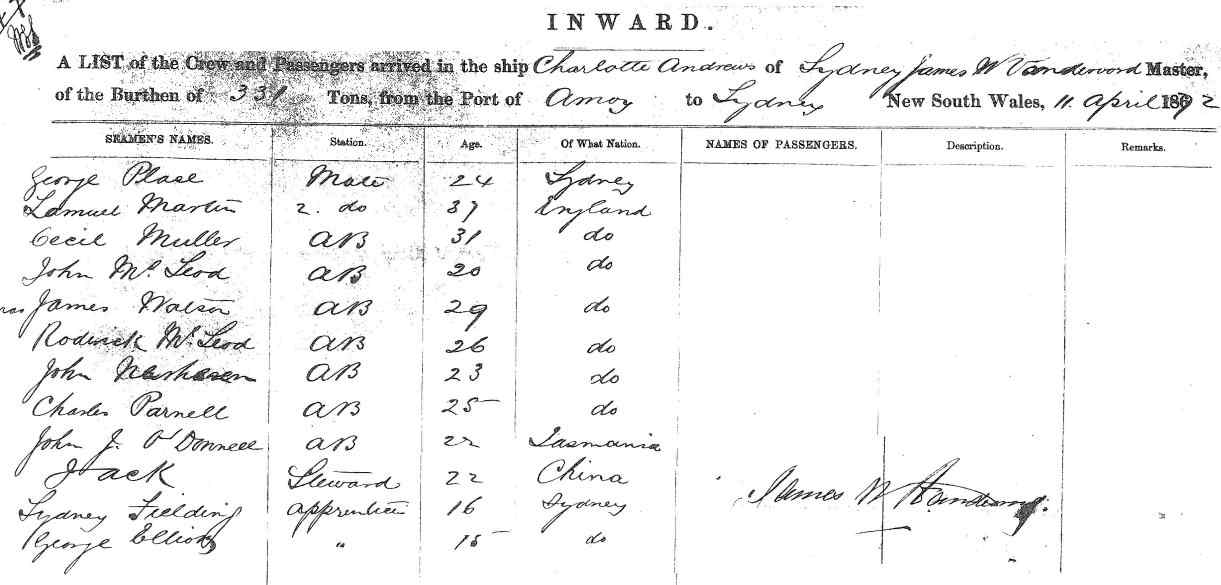 INWARD.
A LIST of the Crew and Passengers arrived in the ship Charlotte Andrews of Sydney James W Master,
of the Burthen of 331 Tons, from the Port of Amoy to Sydney New South Wales, 11 April 1872
SEAMEN'S NAMES. Station. Age. Of What Nation. NAMES OF PASSENGERS. Description. Remarks.
George Plase Mate 24 Sydney
Samuel Martin 2. do 37 England
Cecil Muller AB 31 do
John McLeod AB 20 do
James Watson AB 29 do
Roderick McLeod AB 26 do
John AB 23 do
Charles Parnell AB 25 do
John J. O'Donnell AB 22 Tasmania
Jack Steward 22 China
James W
Sydney Fielding apprentice 16 Sydney
George Elliott " 15 do